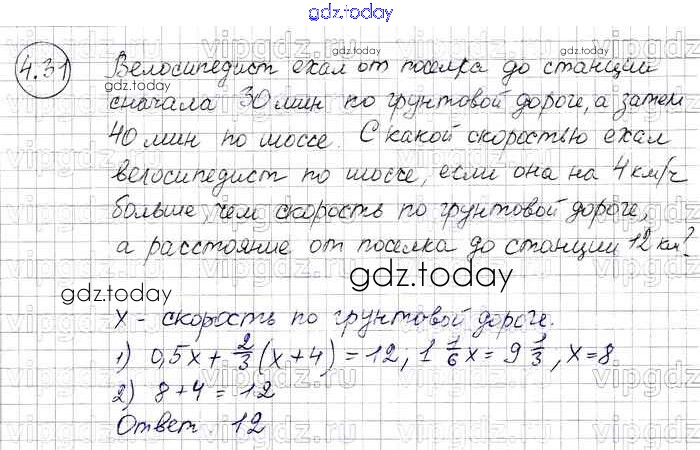 gdz.today
4.31 Велосипедист ехал от поселка до станции
gdz.today
gdz.today
сначала 30 мин по грунтовой дороге, а затем
40 мин по шоссе. С какой скоростью ехал
велосипедист по шоссе, если она на 4 км/ч
больше, чем скорость по грунтовой дороге,
а расстояние от поселка до станции 12 км?
gdz.today
gdz.today
x - скорость по грунтовой дороге.
1) 0,5x + 2/3 (x + 4) = 12, 1 1/6 x = 9 1/3, x = 8
2) 8 + 4 = 12
Ответ. 12